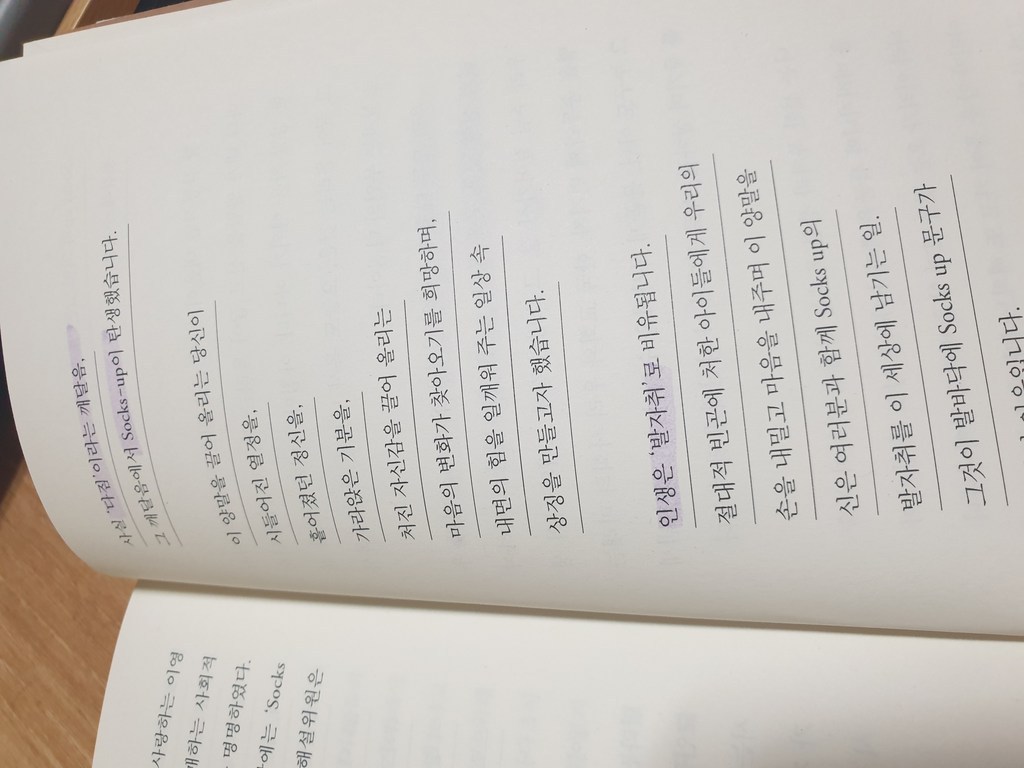 사랑하는 이영
사회적
명명하였다.
'Socks
해설위원은
사실 '다짐'이라는 깨달음,
그 깨달음에서 Socks-up이 탄생했습니다.
이 양말을 끌어 올리는 당신이
시들어진 열정을,
흩어졌던 정신을,
가라앉은 기분을,
처진 자신감을 끌어 올리는
마음의 변화가 찾아오기를 희망하며,
내면의 힘을 일깨워 주는 일상 속
상징을 만들고자 했습니다.
인생은 '발자취'로 비유됩니다.
절대적 빈곤에 처한 아이들에게 우리의
손을 내밀고 마음을 내주며 이 양말을
신은 여러분과 함께 Socks up의
발자취를 이 세상에 남기는 일.
그것이 발바닥에 Socks up 문구가